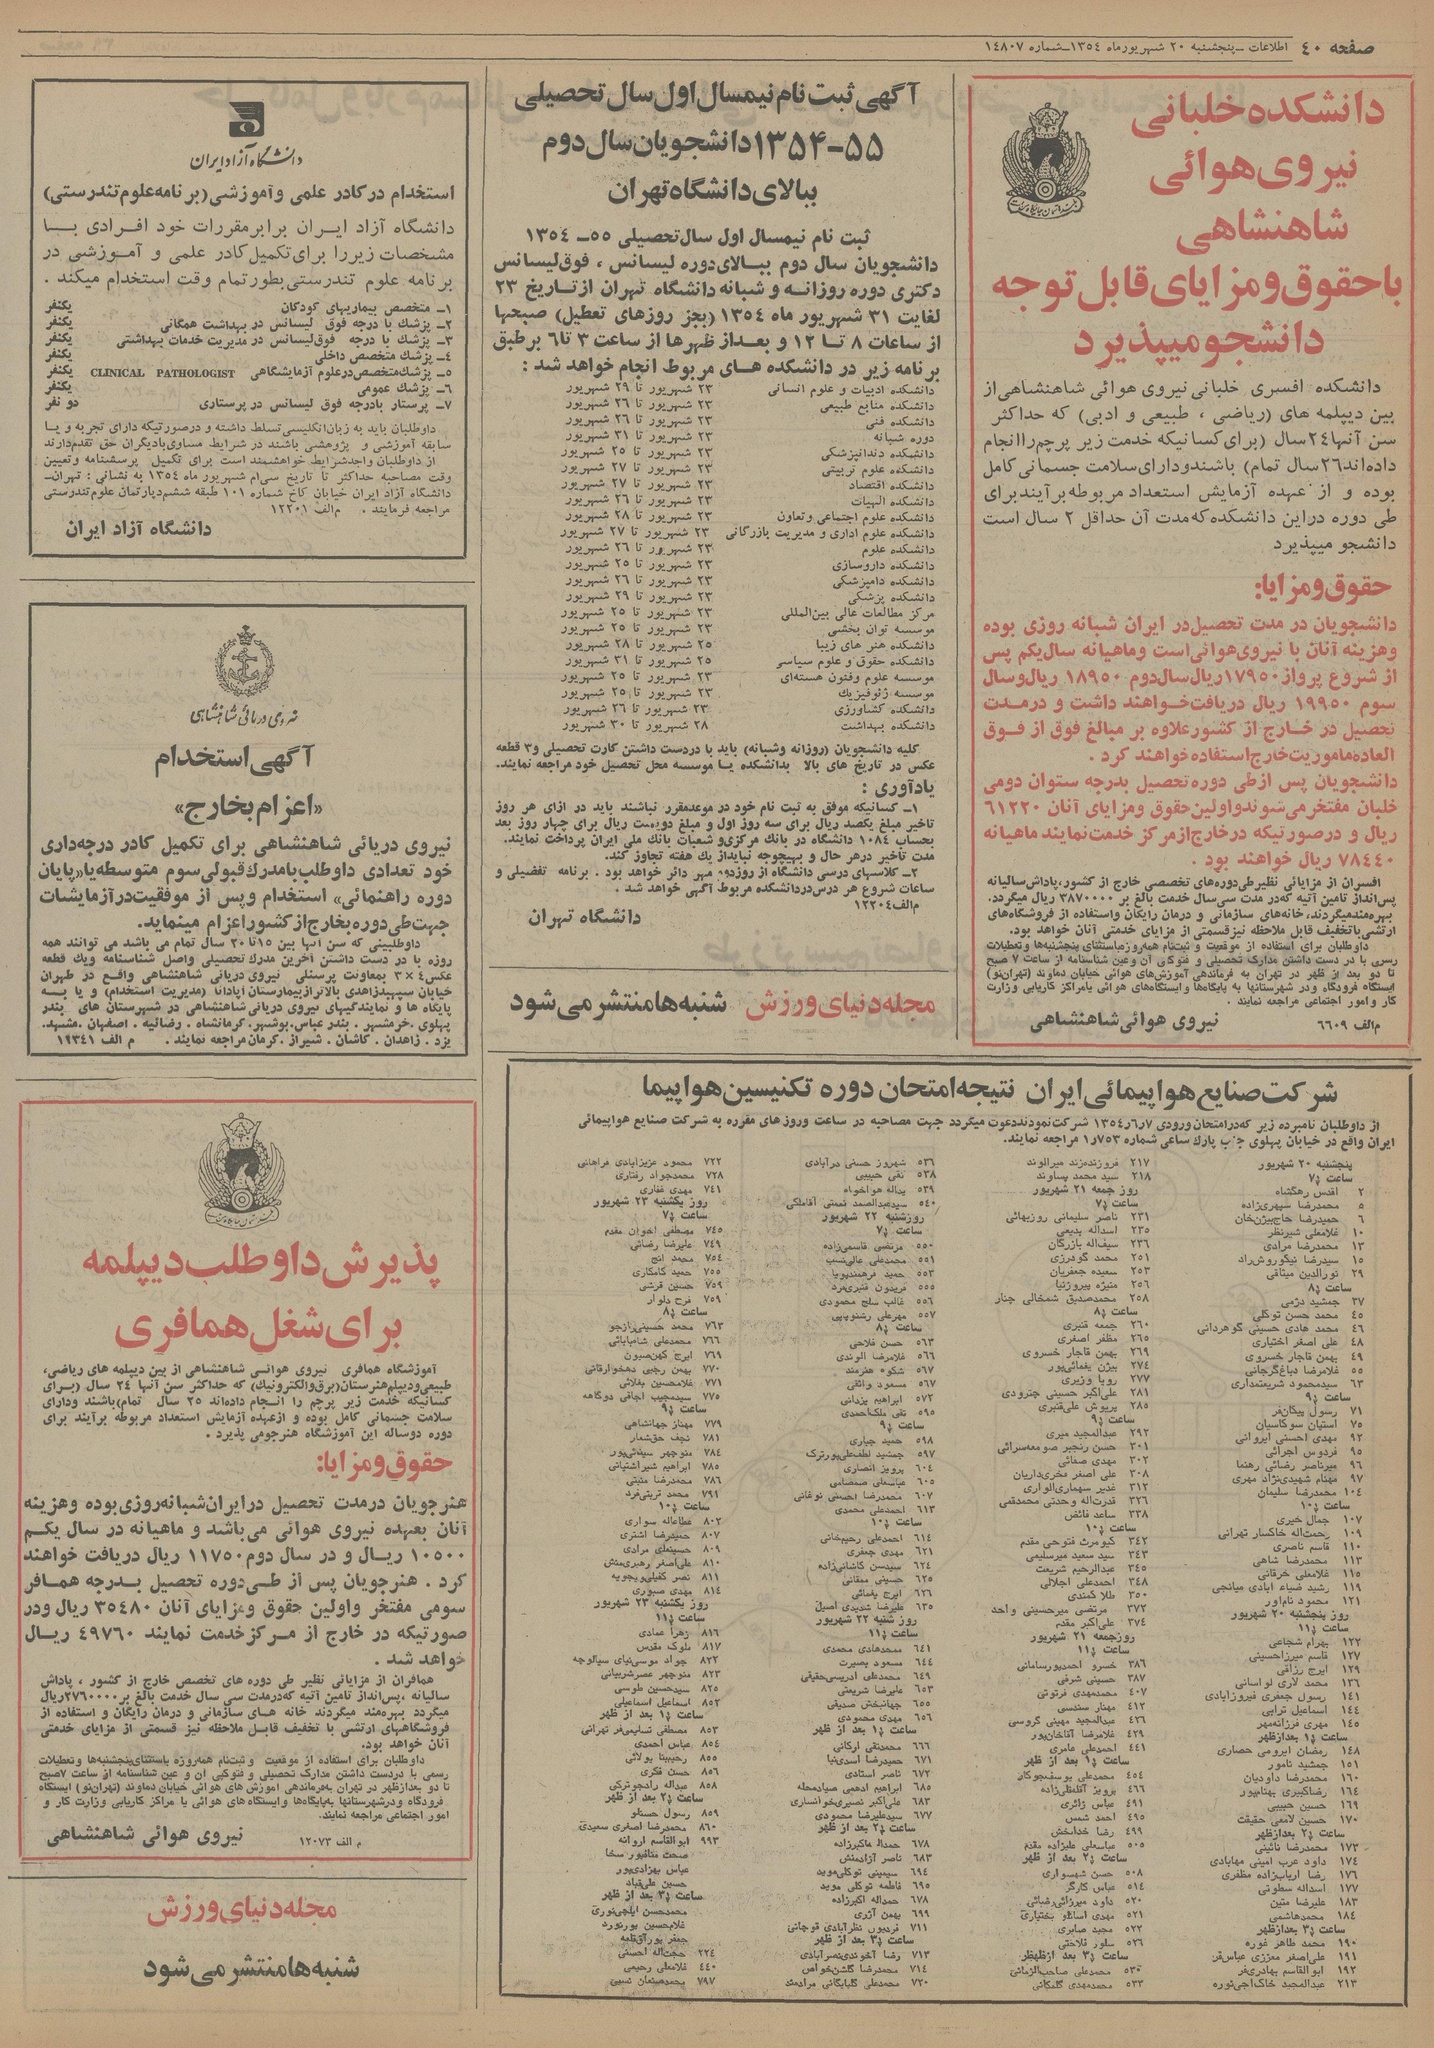 صفحه ٤٠ اطلاعات ــ پنجشنبه ٢٠ شهریورماه ١٣٥٤ــ شماره ١٤٨٠٧
دانشکده خلبانی
نیروی هوائی
شاهنشاهی
با حقوق و مزایای قابل توجه
دانشجو میپذیرد
دانشکده افسری خلبانی نیروی هوائی شاهنشاهی از
بین دیپلمه های (ریاضی ، طبیعی و ادبی) که حداکثر
سن آنها ٢٤ سال (برای کسانیکه خدمت زیر پرچم را انجام
داده‌اند ٢٦ سال تمام) باشند و دارای سلامت جسمانی کامل
بوده و از عهده آزمایش استعداد مربوطه برآیند برای
طی دوره در این دانشکده که مدت آن حداقل ٢ سال است
دانشجو میپذیرد
حقوق و مزایا:
دانشجویان در مدت تحصیل در ایران شبانه روزی بوده
و هزینه آنان با نیروی هوائی است و ماهیانه سال یکم پس
از شروع پرواز ١٧٩٥٠ ریال سال دوم ١٨٩٥٠ ریال و سال
سوم ١٩٩٥٠ ریال دریافت خواهند داشت و در مدت
تحصیل در خارج از کشور علاوه بر مبالغ فوق از فوق
العاده ماموریت خارج استفاده خواهند کرد .
دانشجویان پس از طی دوره تحصیل بدرجه ستوان دومی
خلبان مفتخر می شوند و اولین حقوق و مزایای آنان ٦١٢٢٠
ریال و در صورتیکه در خارج از مرکز خدمت نمایند ماهیانه
٧٨٤٤٠ ریال خواهند بود .
افسران از مزایائی نظیر طی دوره‌های تخصصی خارج از کشور، پاداش سالیانه
پس‌انداز تامین آتیه که در مدت سی سال خدمت بالغ بر ٣٨٧٠٠٠٠ ریال میگردد.
بهره‌مند میگردند، خانه‌های سازمانی و درمان رایگان و استفاده از فروشگاه‌های
ارتشی با تخفیف قابل ملاحظه نیز قسمتی از مزایای خدمتی آنان خواهد بود.
داوطلبان برای استفاده از موقعیت و ثبت‌نام همه روزه باستثنای پنجشنبه‌ها و تعطیلات
رسمی با در دست داشتن مدارک تحصیلی و فتوکپی آن و عین شناسنامه از ساعت ٧ صبح
تا دو بعد از ظهر در تهران به فرماندهی آموزش‌های هوائی خیابان دماوند (تهران‌نو)
ایستگاه فرودگاه و در شهرستانها به پایگاه‌ها و ایستگاه‌های هوائی یا مراکز کاریابی وزارت
کار و امور اجتماعی مراجعه نمایند .
م‌الف ٦٦٠٩ نیروی هوائی شاهنشاهی
آگهی ثبت نام نیمسال اول سال تحصیلی
٥٥-١٣٥٤ دانشجویان سال دوم
ببالای دانشگاه تهران
ثبت نام نیمسال اول سال تحصیلی ٥٥ــ ١٣٥٤
دانشجویان سال دوم ببالای دوره لیسانس ، فوق لیسانس
دکتری دوره روزانه و شبانه دانشگاه تهران از تاریخ ٢٣
لغایت ٣١ شهریور ماه ١٣٥٤ (بجز روزهای تعطیل) صبحها
از ساعات ٨ تا ١٢ و بعداز ظهرها از ساعت ٣ تا ٦ بر طبق
برنامه زیر در دانشکده های مربوط انجام خواهد شد :
دانشکده ادبیات و علوم انسانی ٢٣ شهریور تا ٢٩ شهریور
دانشکده منابع طبیعی ٢٣ شهریور تا ٢٦ شهریور
دانشکده فنی ٢٣ شهریور تا ٢٦ شهریور
دوره شبانه ٢٣ شهریور تا ٣١ شهریور
دانشکده دندانپزشکی ٢٣ شهریور تا ٢٥ شهریور
دانشکده علوم تربیتی ٢٣ شهریور تا ٢٧ شهریور
دانشکده اقتصاد ٢٣ شهریور تا ٢٧ شهریور
دانشکده الهیات ٢٣ شهریور تا ٢٦ شهریور
دانشکده علوم اجتماعی و تعاون ٢٣ شهریور تا ٢٨ شهریور
دانشکده علوم اداری و مدیریت بازرگانی ٢٣ شهریور تا ٢٧ شهریور
دانشکده علوم ٢٣ شهریور تا ٢٦ شهریور
دانشکده داروسازی ٢٣ شهریور تا ٢٥ شهریور
دانشکده دامپزشکی ٢٣ شهریور تا ٢٦ شهریور
دانشکده پزشکی ٢٣ شهریور تا ٢٩ شهریور
مرکز مطالعات عالی بین‌المللی ٢٣ شهریور تا ٢٥ شهریور
موسسه توان بخشی ٢٣ شهریور تا ٢٥ شهریور
دانشکده هنر های زیبا ٢٥ شهریور تا ٢٨ شهریور
دانشکده حقوق و علوم سیاسی ٢٥ شهریور تا ٣١ شهریور
موسسه علوم وفنون هسته‌ای ٢٣ شهریور تا ٢٥ شهریور
موسسه ژئوفیزیک ٢٣ شهریور تا ٢٥ شهریور
دانشکده کشاورزی ٢٣ شهریور تا ٢٦ شهریور
دانشکده بهداشت ٢٨ شهریور تا ٣٠ شهریور
کلیه دانشجویان (روزانه وشبانه) باید با در دست داشتن کارت تحصیلی و ٣ قطعه
عکس در تاریخ های بالا بدانشکده یا موسسه محل تحصیل خود مراجعه نمایند.
یادآوری :
١ــ کسانیکه موفق به ثبت نام خود در موعد مقرر نباشند باید در ازای هر روز
تاخیر مبلغ یکصد ریال برای سه روز اول و مبلغ دویست ریال برای چهار روز بعد
بحساب ١٠٨٤ دانشگاه در بانک مرکزی و شعبات بانک ملی ایران پرداخت نمایند.
مدت تاخیر در هر حال و بهیچوجه نباید از یک هفته تجاوز کند.
٢ــ کلاسهای درسی دانشگاه از روز دوم مهر دائر خواهد بود . برنامه تفضیلی و
ساعات شروع هر درس در دانشکده مربوط آگهی خواهد شد .
م‌الف ١٢٢٠٤
دانشگاه تهران
مجله دنیای ورزش شنبه‌ها منتشر می شود
دانشگاه آزاد ایران
استخدام در کادر علمی و آموزشی (برنامه علوم تندرستی)
دانشگاه آزاد ایران برابر مقررات خود افرادی با
مشخصات زیر را برای تکمیل کادر علمی و آموزشی در
برنامه علوم تندرستی بطور تمام وقت استخدام میکند .
١ــ متخصص بیماریهای کودکان یکنفر
٢ــ پزشک با درجه فوق لیسانس در بهداشت همگانی یکنفر
٣ــ پزشک با درجه فوق لیسانس در مدیریت خدمات بهداشتی یکنفر
٤ــ پزشک متخصص داخلی یکنفر
٥ــ پزشک متخصص در علوم آزمایشگاهی CLINICAL PATHOLOGIST یکنفر
٦ــ پزشک عمومی یکنفر
٧ــ پرستار بادرجه فوق لیسانس در پرستاری دو نفر
داوطلبان باید به زبان انگلیسی تسلط داشته و در صورتیکه دارای تجربه و یا
سابقه آموزشی و پژوهشی باشند در شرایط مساوی بادیگران حق تقدم دارند
از داوطلبان واجد شرایط خواهشمند است برای تکمیل پرسشنامه و تعیین
وقت مصاحبه حداکثر تا تاریخ سی‌ام شهریور ماه ١٣٥٤ به نشانی : تهران ــ
دانشگاه آزاد ایران خیابان کاخ شماره ١٠١ طبقه ششم دپارتمان علوم تندرستی
مراجعه فرمایند . م‌الف ١٢٢٠١
دانشگاه آزاد ایران
نیروی دریائی شاهنشاهی
آگهی استخدام
«اعزام بخارج»
نیروی دریائی شاهنشاهی برای تکمیل کادر درجه‌داری
خود تعدادی داوطلب با مدرک قبولی سوم متوسطه یا «پایان
دوره راهنمائی» استخدام و پس از موفقیت در آزمایشات
جهت طی دوره بخارج از کشور اعزام مینماید.
داوطلبینی که سن آنها بین ١٥ تا ٢٠ سال تمام می باشد می توانند همه
روزه با در دست داشتن آخرین مدرک تحصیلی واصل شناسنامه ویک قطعه
عکس ٤ × ٣ بمعاونت پرسنلی نیروی دریائی شاهنشاهی واقع در طهران
خیابان سپهبد زاهدی بالاتر از بیمارستان آپادانا (مدیریت استخدام) و یا به
پایگاه ها و نمایندگیهای نیروی دریائی شاهنشاهی در شهرستان های بندر
پهلوی .خرمشهر . بندر عباس.بوشهر.کرمانشاه . رضائیه . اصفهان .مشهد.
یزد . زاهدان . کاشان . شیراز .کرمان مراجعه نمایند . م الف ١٩٣٤١
پذیرش داوطلب دیپلمه
برای شغل همافری
آموزشگاه همافری نیروی هوائی شاهنشاهی از بین دیپلمه های ریاضی،
طبیعی و دیپلم هنرستان (برق والکترونیک) که حداکثر سن آنها ٢٤ سال (برای
کسانیکه خدمت زیر پرچم را انجام داده‌اند ٢٥ سال تمام) باشند و دارای
سلامت جسمانی کامل بوده و از عهده آزمایش استعداد مربوطه برآیند برای
دوره دوساله این آموزشگاه هنرجو می پذیرد .
حقوق و مزایا:
هنرجویان در مدت تحصیل در ایران شبانه روزی بوده و هزینه
آنان بعهده نیروی هوائی می باشد و ماهیانه در سال یکم
١٠٥٠٠ ریال و در سال دوم ١١٧٥٠ ریال دریافت خواهند
کرد . هنرجویان پس از طی دوره تحصیل بدرجه همافر
سومی مفتخر و اولین حقوق و مزایای آنان ٣٥٤٨٠ ریال و در
صورتیکه در خارج از مرکز خدمت نمایند ٤٩٧٦٠ ریال
خواهد شد .
همافران از مزایائی نظیر طی دوره های تخصص خارج از کشور ، پاداش
سالیانه ،پس‌انداز تامین آتیه که در مدت سی سال خدمت بالغ بر ٢٧٦٠٠٠٠ ریال
میگردد بهره‌مند میگردند خانه های سازمانی و درمان رایگان و استفاده از
فروشگاههای ارتشی با تخفیف قابل ملاحظه نیز قسمتی از مزایای خدمتی
آنان خواهد بود.
داوطلبان برای استفاده از موقعیت و ثبت‌نام همه‌روزه باستثنای پنجشنبه‌ها و تعطیلات
رسمی با در دست داشتن مدارک تحصیلی و فتوکپی آن و عین شناسنامه از ساعت ٧ صبح
تا دو بعدازظهر در تهران به‌فرماندهی آموزش های هوائی خیابان دماوند (تهران‌نو) ایستگاه
فرودگاه و در شهرستانها به‌پایگاه‌ها و ایستگاه های هوائی یا مراکز کاریابی وزارت کار و
امور اجتماعی مراجعه نمایند.
م الف ١٢٠٧٣ نیروی هوائی شاهنشاهی
مجله دنیای ورزش
شنبه ها منتشر می شود
شرکت صنایع هواپیمائی ایران نتیجه امتحان دوره تکنیسین هواپیما
از داوطلبان نامبرده زیر که در امتحان ورودی ١٣٥٤/٦/٧ شرکت نمودند دعوت میگردد جهت مصاحبه در ساعت وروز های مقرره به شرکت صنایع هواپیمائی
ایران واقع در خیابان پهلوی جنب پارک ساعی شماره ١/٧٥٣ مراجعه نمایند.
پنجشنبه ٢٠ شهریور
٢ اقدس رهگشاه
٥ محمدرضا سپهری‌زاده
٦ حمیدرضا حاج‌بیژن‌خان
١٠ غلامعلی شیرنظر
١٣ محمدرضا مرادی
١٥ سیدرضا نیکوروش‌راد
٢٩ نورالدین میثاقی
٣٧ جمشید دژمی
٤٥ محمد حسن توکلی
٤٦ محمد هادی حسینی گوهردانی
٤٨ علی اصغر اختیاری
٤٩ بهمن قاجار خسروی
٥٥ غلامرضا دباغ‌گرجانی
٦٣ سیدمحمود شریعتمداری
٧١ رسول پیکان‌فر
٧٥ استپان سوکاسیان
٩٢ مهدی احسنی ایروانی
٩٥ فردوس اجرائی
٩٦ میرناصر رضائی رهنما
٩٧ مهنام شهیدی‌نژاد مهری
١٠٤ محمدرضا سلیمان
١٠٧ جمال خیری
١٠٩ رحمت‌اله خاکسار تهرانی
١١٠ قاسم ناصری
١١٣ محمدرضا شاهی
١١٥ غلامعلی خرقانی
١١٩ رشید ضیاء آبادی میانجی
١٢١ محمود نام‌آور
روز پنجشنبه ٢٠ شهریور
١٢٢ بهرام شجاعی
١٢٧ قاسم میرزاحسینی
١٢٩ ایرج رزاقی
١٣٦ محمد لاری لواسانی
١٤١ رسول جعفری فیروزآبادی
١٤٤ اسماعیل ترابی
١٤٥ مهری فرزانه‌مهر
١٤٨ رمضان ایرومی حصاری
١٥١ جمشید نامور
١٦٠ محمدرضا داودیان
١٦٤ رضاکبیری بهنام‌پور
١٦٩ حسین حبیبی
١٧٠ حسین لامعی حقیقت
١٧٣ محمدرضا نائینی
١٧٤ داود عرب امینی مهابادی
١٧٦ رضا ارباب‌زاده مظفری
١٧٧ اسداله سطوتی
١٨٣ علیرضا متین
١٨٤ محمدهاشمی
١٩٠ محمد طاهر غوره
١٩١ علی‌اصغر معززی عباس‌فر
١٩٢ ابوالقاسم بهادری‌فر
٢١٣ عبدالمجید خاک‌اجی‌نوره
٢١٨ سید محمد پساوند
روز جمعه ٢١ شهریور
٢٣١ ناصر سلیمانی روزبهائی
٢٣٥ اسداله بدیعی
٢٣٦ سیف‌اله بازرگان
٢٥١ محمد گودرزی
٢٥٣ سعیده جعفریان
٢٥٦ منیژه پیروزنیا
٢٥٨ محمدصدیق شمخالی چنار
٢٦٠ جمعه قنبری
٢٦٥ مظفر اصغری
٢٦٩ بهمن قاجار خسروی
٢٧٤ بیژن یغمائی‌پور
٢٧٧ رویا وزیری
٢٨١ علی‌اکبر حسینی چنرودی
٢٨٥ پریوش علی‌قنبری
٢٩٢ عبدالمجید میری
٣٠١ حسن رنجبر صومعه‌سرائی
٣٠٢ مهدی صفائی
٣٠٨ علی اصغر فخری‌داریان
٣١٢ غدیر سهماری‌الواری
٣٢٦ قدرت‌اله وحدتی محمدقمی
٣٣٨ ساعد فائض
٣٤٢ کیومرث فتوحی مقدم
٣٤٣ سید سعید میرسلیمی
٣٤٥ عبدالرحیم شریعت
٣٤٨ احمدعلی اجلالی
٣٥٠ طلا کمندی
٣٧٢ مرتضی میرحسینی واحد
٣٧٤ علی‌اکبر مقدم
روزجمعه ٢١ شهریور
٣٨٦ خسرو احمدپورسامانی
٣٨٧ حسین شرفی
٤٠٧ محمدمهدی فرتوتی
٤١٢ مهناز سندسی
٤٢٦ عبدالمجید مهینی گروسی
٤٢٩ غلامرضا آقاخان‌پور
٤٤١ احمدعلی عامری
٤٥٤ محمدعلی یوسف‌جوکار
٤٩١ عباس زائری
٤٩٥ احمد شمس
٤٩٩ رضا خدابخش
٥٠٥ عباسعلی علیزاده مقدم
٥٠٨ حسن شهسواری
٥١٤ عباس کارگر
٥٢٠ داود میرزائی‌رضائی
٥٢٢ مجید صابری
٥٢٦ سلور فلاحتی
٥٣٠ محمدعلی صاحب‌الزمانی
٥٣٣ محمدمهدی گلمکانی
٥٣٦ شهروز حسنی درآبادی
٥٣٨ تقی حبیبی
٥٣٩ یداله هواخواه
روزشنبه ٢٢ شهریور
٥٥٠ مرتضی قاسمی‌زاده
٥٥١ محمدعلی عالی‌نسب
٥٥٣ حمید فرهمندپویا
٥٥٥ فریدون قنبری‌فرد
٥٦٣ حسن فلاحی
٥٦٦ غلامرضا الوندی
٥٦٧ شکوه هنرمند
٥٦٧ مسعود واثقی
٥٧٢ ابراهیم یزدانی
٥٩٥ تقی ملک‌احمدی
٥٩٨ حمید جباری
٥٩٧ جمشید لطف‌علی‌پورترک
٦٠٤ پرویز انصاری
٦٠٥ عباسعلی صمصامی
٦١٣ احمدعلی محمدی
٦١٤ احمدعلی رحیم‌خانی
٦٢١ مهدی جعفری
٦٢٤ سیدحسن کاشانی‌زاده
٦٢٥ حسینی ممقانی
٦٢٦ ایرج یغمائی
روز شنبه ٢٢ شهریور
٦٤١ محمدهادی محمدی
٦٤٤ مسعود بصیرت
٦٤٩ محمدعلی ادریسی‌حقیقی
٦٥٣ علیرضا شریعتی
٦٥٥ جهانبخش صدیقی
٦٥٦ مهدی محمودی
٦٦٦ محمدتقی ارکانی
٦٧١ حمیدرضا اسدی‌نیا
٦٧٢ ناصر استادی
٦٨٥ ابراهیم ادهمی صیادمحله
٦٧٧ سیدعلیرضا محمودی
٦٧٨ حمداله ماکبرزاده
٦٨٣ ناصر آزادمنش
٦٩٤ سیمینی توکلی‌موید
٦٩٥ فاطمه توکلی موید
٦٧٨ حمداله اکبرزاده
٦٩٩ بهمن آژری
٧١١ فریدون نظرآبادی قوچانی
٧١٤ محمدرضا گلشن‌خواص
٧٢٢ محمود عزیزآبادی فراهانی
٧٢٨ محمدجواد رفتاری
٧٤١ مهدی غفاری
روز یکشنبه ٢٣ شهریور
٧٤٥ مصطفی اخوان مقدم
٧٤٩ علیرضا رضائی
٧٥٤ محمد آنج
٧٥٥ حمید کامکاری
٧٥٩ حسین قرشی
٧٥٩ فرح دلوار
٧٦٦ محمدعلی شاه‌بابائی
٧٦٩ ایرج کهن‌صبون
٧٧٠ بهمن رجبی دهخوارقانی
٧٧١ غلامحسین بغلانی
٧٧٩ مهناز جهانشاهی
٧٨١ نجف حق‌شعار
٧٨٥ ابراهیم شیراشتیانی
٧٨٦ محمدرضا مثبتی
٧٩١ محمد تربتی‌فرد
٨٠٢ عطااله سواری
٨٠٧ حمیدرضا اشتری
٨٠٩ حسینعلی مرادی
٨١٠ علی‌اصغر رهبری‌منش
٨١١ نصر کفیلی‌ویجویه
٨١٤ مهدی صبوری
روز یکشنبه ٢٣ شهریور
٨١٦ زهرا عمادی
٨١٧ ملوک مقدس
٨٢٢ جواد موسی‌نیای سیالوجه
٨٢٣ منوچهر عصرشربیانی
٨٢٥ سیدحسین طوسی
٨٥٢ اسماعیل اسماعیلی
٨٥٣ مصطفی تسلیمی‌فر تهرانی
٨٥٤ عباس احمدی
٨٥٦ حسن فکری
٨٥٨ عبداله رادجوترکی
٨٥٩ رسول حسنلو
٨٦٠ محمدرضا اصغری سعیدی
٩٩٣ ابوالقاسم اروانه
عباس بهزادی‌پور
حسین علی‌قباد
محمدحسن ایلچی‌نوری
غلامحسین پورنورد
٢٢٤ حجت‌اله احسنی
٤٤٠ غلامعلی رحیمی